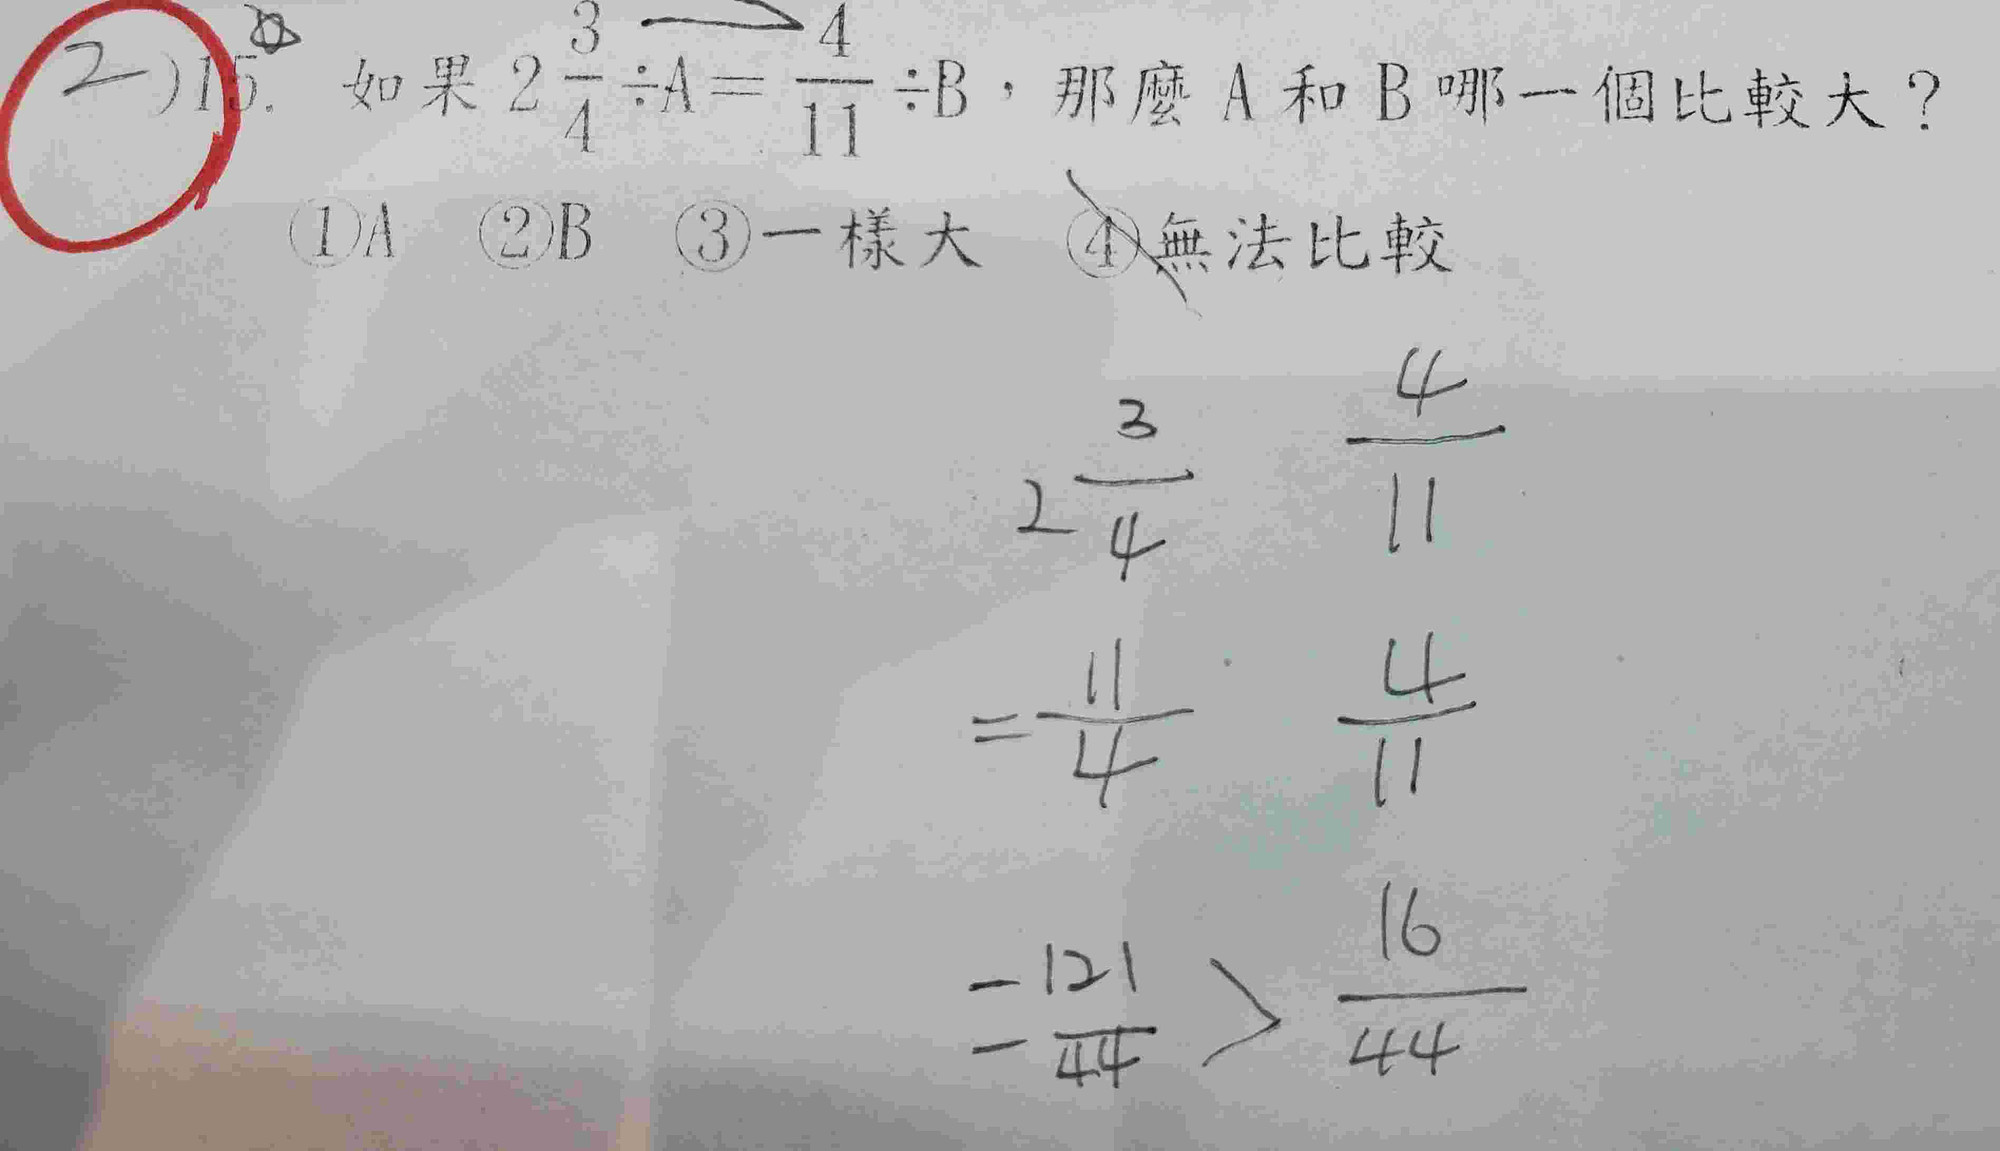 2 )15. 如果 2 3/4 ÷A＝ 4/11 ÷B，那麼 A 和 B 哪一個比較大？
①A ②B ③一樣大 ④無法比較
2 3/4 4/11
= 11/4 4/11
= 121/44 > 16/44